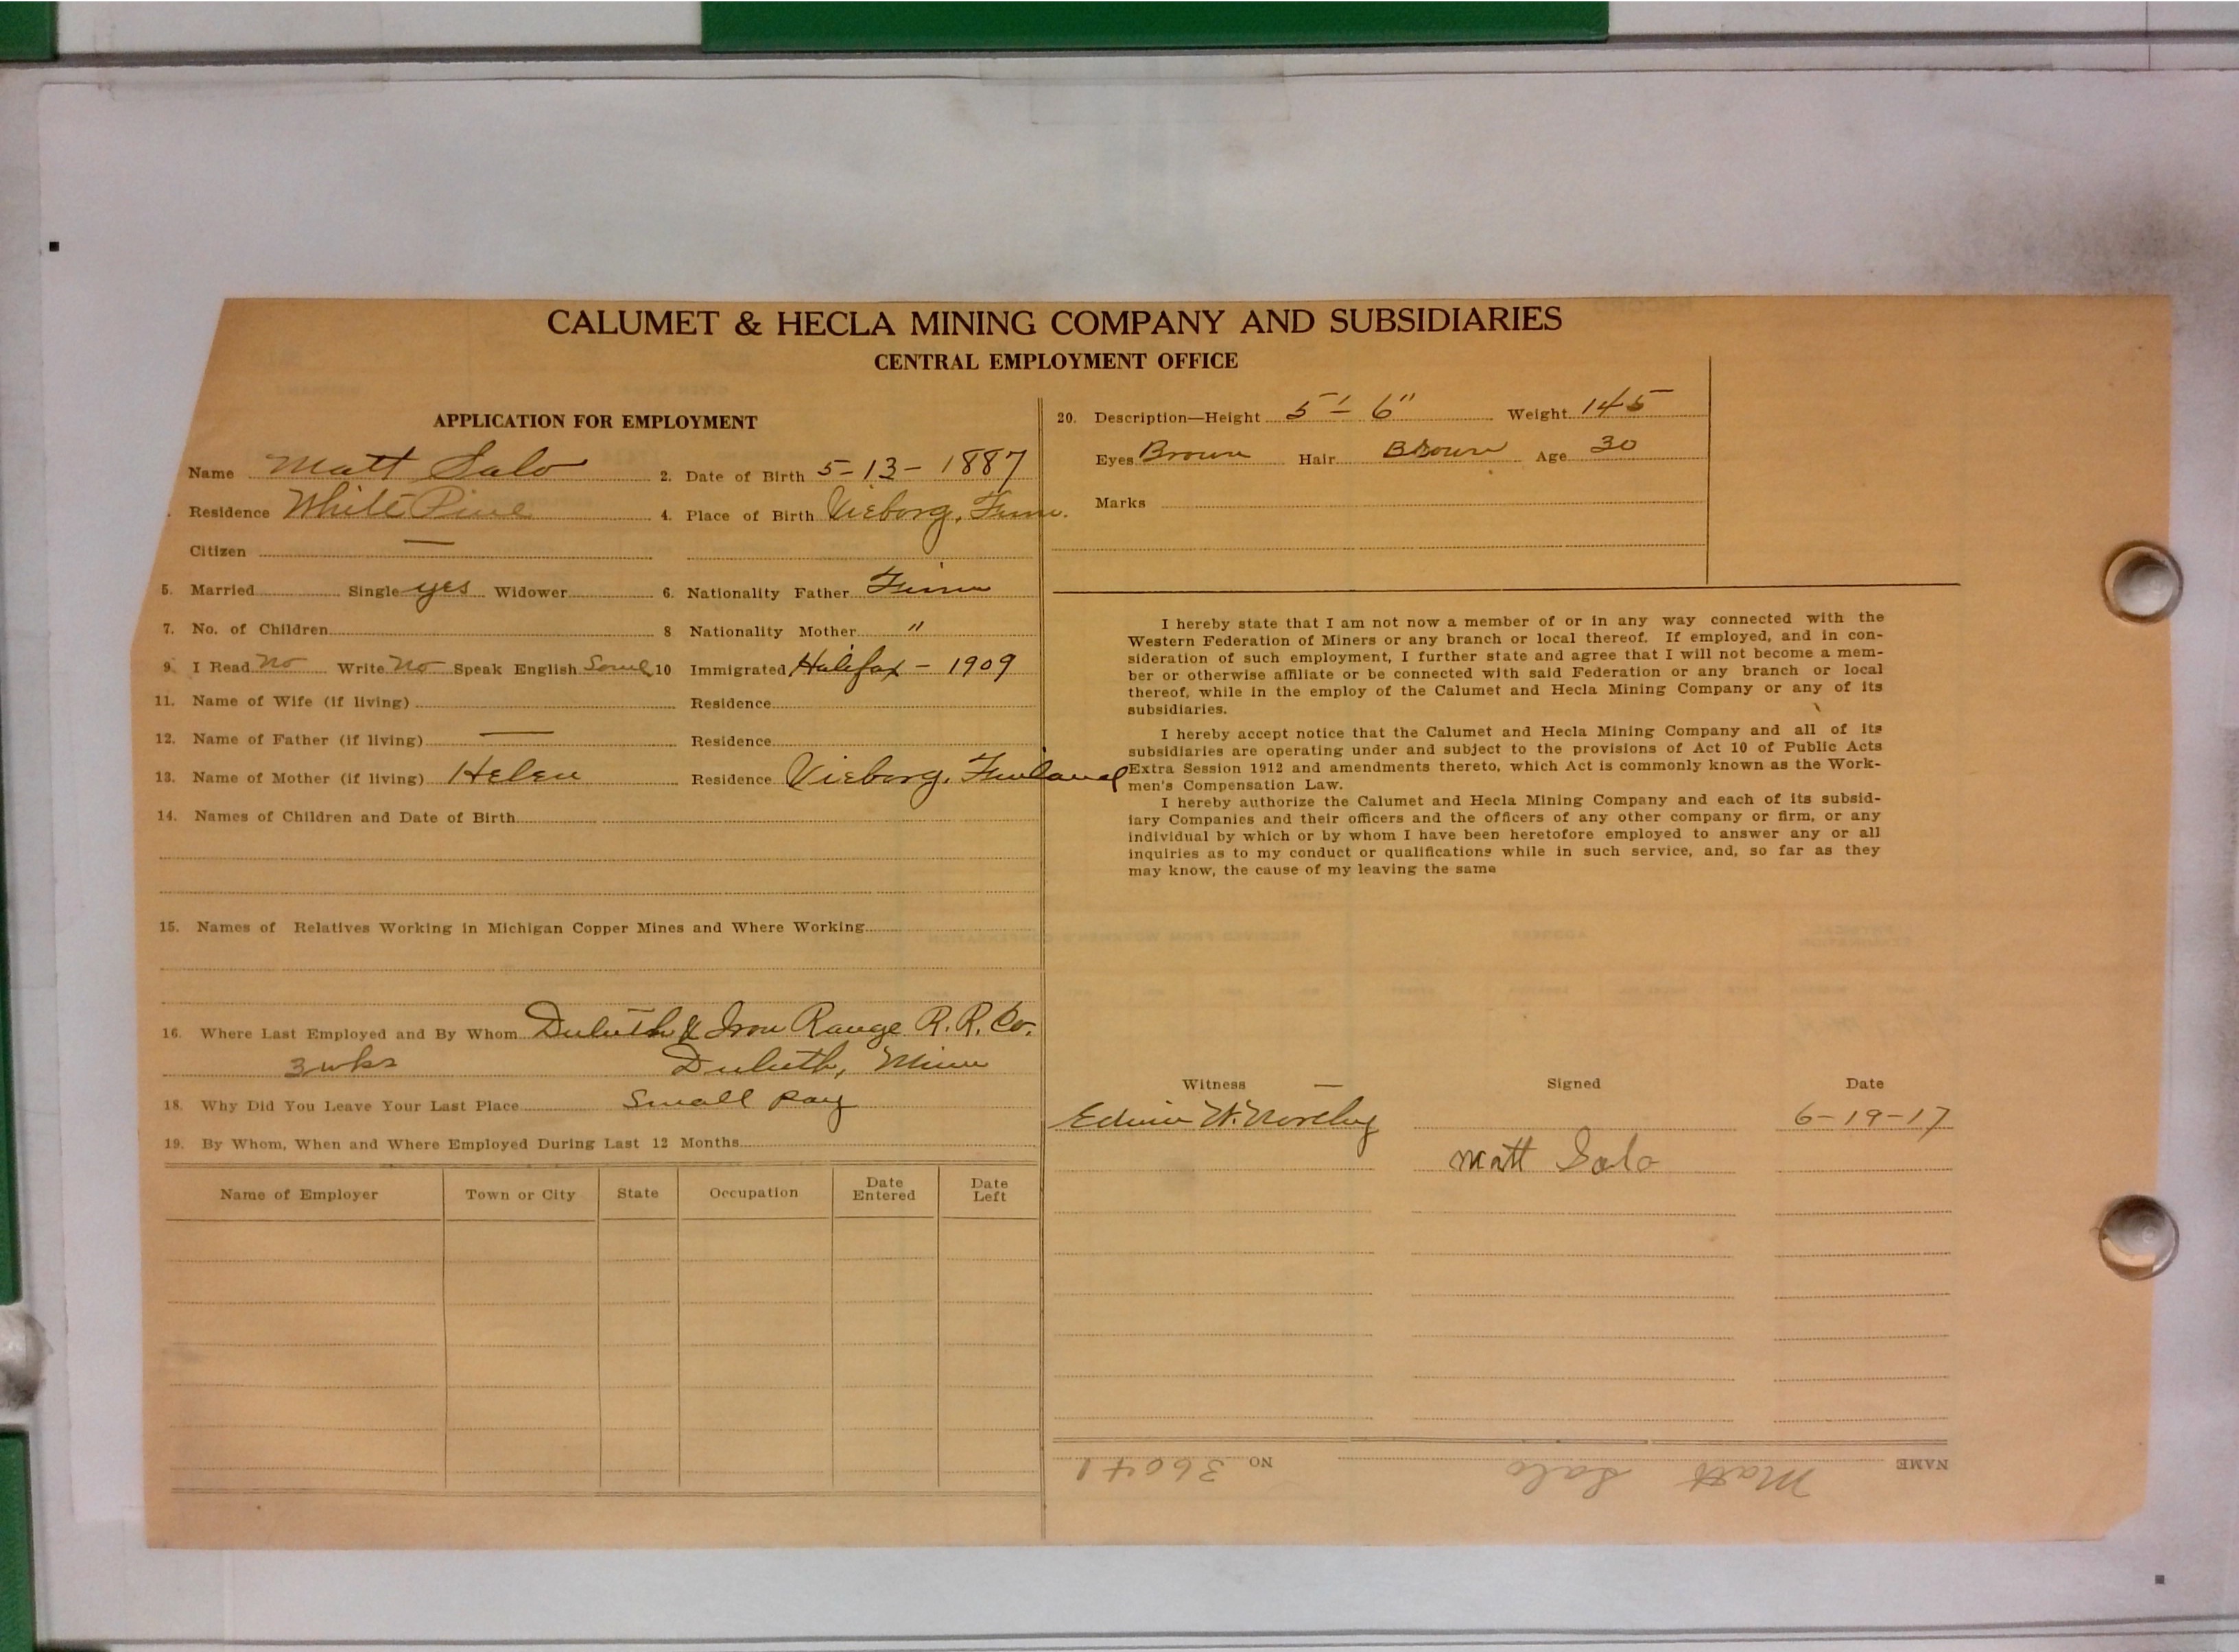 CALUMET & HECLA MINING COMPANY AND SUBSIDIARIES
CENTRAL EMPLOYMENT OFFICE
APPLICATION FOR EMPLOYMENT
Name Matt Salo 2. Date of Birth 5-13-1887
Residence White Pine 4. Place of Birth Vieborg, Finn.
Citizen —
5. Married Single yes Widower 6. Nationality Father Finn
7. No. of Children 8 Nationality Mother "
9. I Read no Write no Speak English Some 10 Immigrated Halifax - 1909
11. Name of Wife (if living) Residence
12. Name of Father (if living) — Residence
13. Name of Mother (if living) Helen Residence Vieborg, Finland
14. Names of Children and Date of Birth
15. Names of Relatives Working in Michigan Copper Mines and Where Working
16. Where Last Employed and By Whom Duluth & Iron Range R.R. Co.
3 wks Duluth, Minn
18. Why Did You Leave Your Last Place Small pay
19. By Whom, When and Where Employed During Last 12 Months
Name of Employer Town or City State Occupation Date Entered Date Left
20. Description—Height 5'- 6" Weight 145
Eyes Brown Hair Brown Age 30
Marks
I hereby state that I am not now a member of or in any way connected with the
Western Federation of Miners or any branch or local thereof. If employed, and in con-
sideration of such employment, I further state and agree that I will not become a mem-
ber or otherwise affiliate or be connected with said Federation or any branch or local
thereof, while in the employ of the Calumet and Hecla Mining Company or any of its
subsidiaries.
I hereby accept notice that the Calumet and Hecla Mining Company and all of its
subsidiaries are operating under and subject to the provisions of Act 10 of Public Acts
Extra Session 1912 and amendments thereto, which Act is commonly known as the Work-
men's Compensation Law.
I hereby authorize the Calumet and Hecla Mining Company and each of its subsid-
iary Companies and their officers and the officers of any other company or firm, or any
individual by which or by whom I have been heretofore employed to answer any or all
inquiries as to my conduct or qualifications while in such service, and, so far as they
may know, the cause of my leaving the same
Witness — Signed Date
Edwin W. 6-19-17
Matt Salo
NAME Matt Salo NO 36041